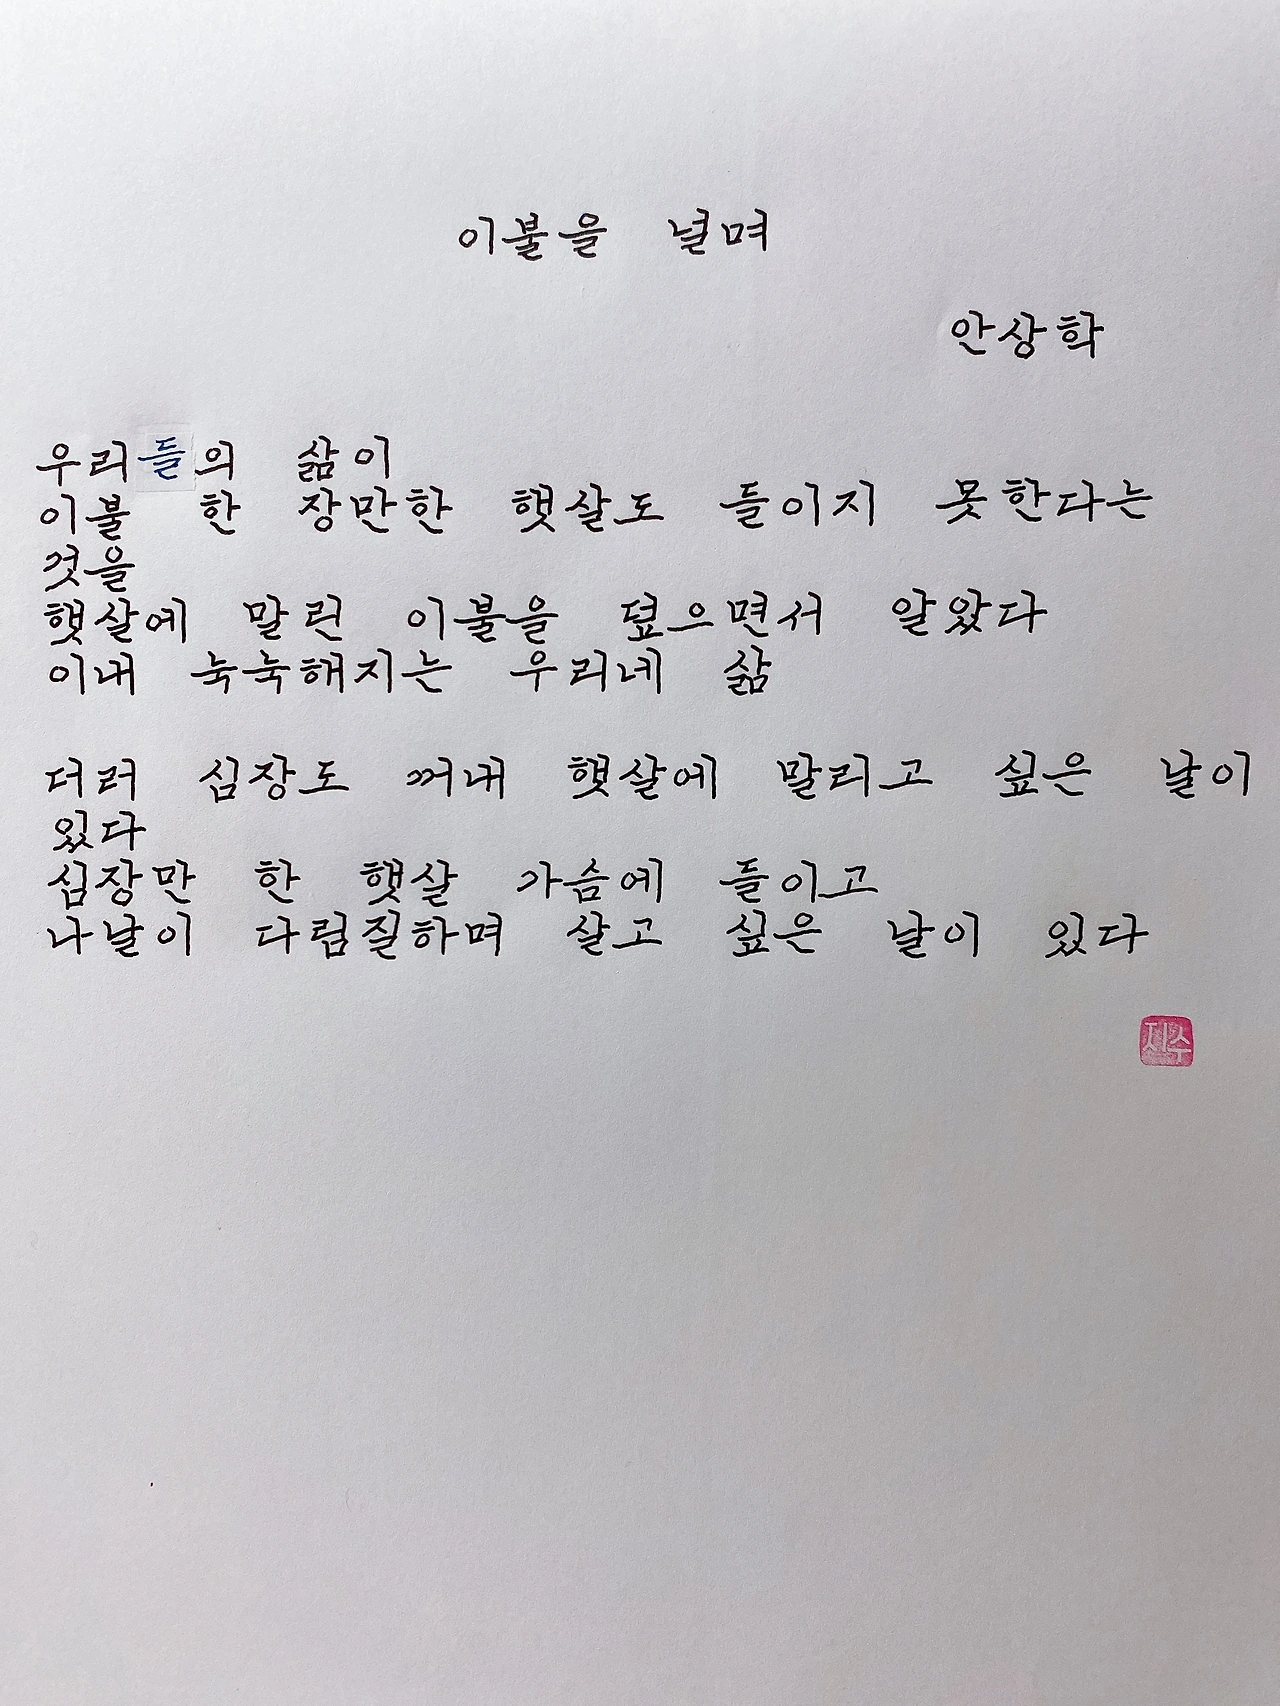 이불을 널며
안상학
우리들의 삶이
이불 한 장만한 햇살도 들이지 못한다는
것을
햇살에 말린 이불을 덮으면서 알았다
이내 눅눅해지는 우리네 삶
더러 심장도 꺼내 햇살에 말리고 싶은 날이
있다
심장만 한 햇살 가슴에 들이고
나날이 다림질하며 살고 싶은 날이 있다
지수